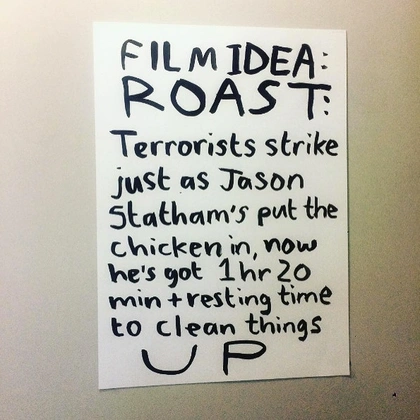 FILM IDEA:
ROAST:
Terrorists strike
just as Jason
Statham's put the
chicken in, now
he's got 1hr 20
min + resting time
to clean things
UP